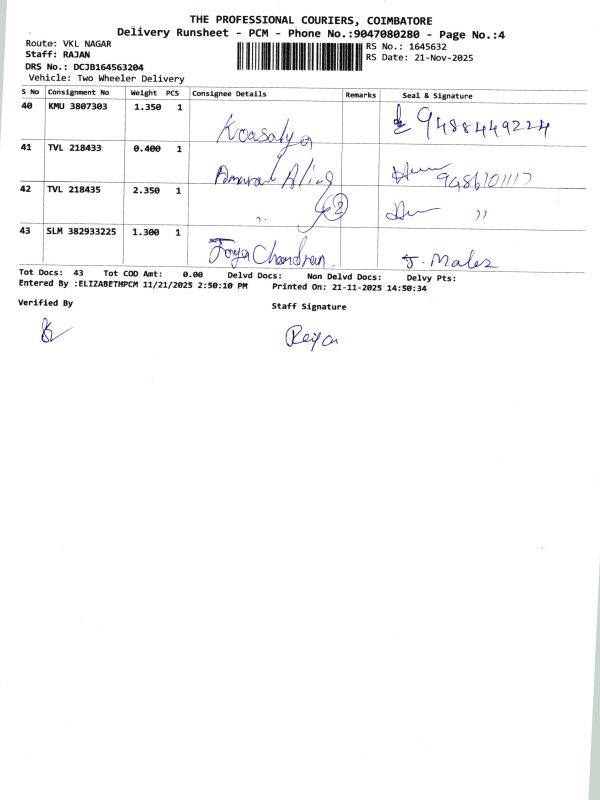 THE PROFESSIONAL COURIERS, COIMBATORE
Delivery Runsheet - PCM - Phone No.:9047080280 - Page No.:4
Route: VKL NAGAR RS No.: 1645632
Staff: RAJAN RS Date: 21-Nov-2025
DRS No.: DCJB164563204
Vehicle: Two Wheeler Delivery
S No Consignment No Weight PCS Consignee Details Remarks Seal & Signature
40 KMU 3807303 1.350 1 9488449224
41 TVL 218433 0.400 1 9486101117
42 TVL 218435 2.350 1 ,, 2 ,,
43 SLM 382933225 1.300 1 Chandran J. Malez
Tot Docs: 43 Tot COD Amt: 0.00 Delvd Docs: Non Delvd Docs: Delvy Pts:
Entered By :ELIZABETHPCM 11/21/2025 2:50:10 PM Printed On: 21-11-2025 14:50:34
Verified By Staff Signature